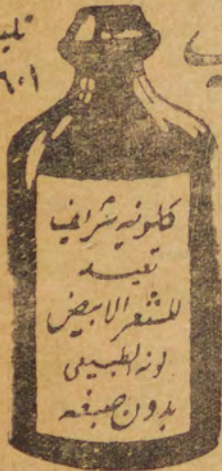 كلونيه شرابي
تعيد
للشعر الابيض
لونه الطبيعي
بدون صبغه